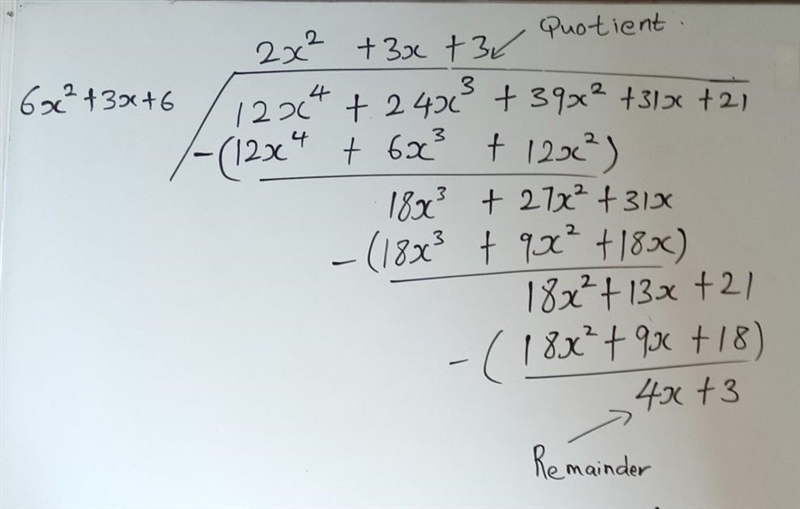 2x² + 3x + 3 Quotient.
6x² + 3x + 6 12x⁴ + 24x³ + 39x² + 31x + 21
-(12x⁴ + 6x³ + 12x²)
18x³ + 27x² + 31x
-(18x³ + 9x² + 18x)
18x² + 13x + 21
-(18x² + 9x + 18)
4x + 3
Remainder